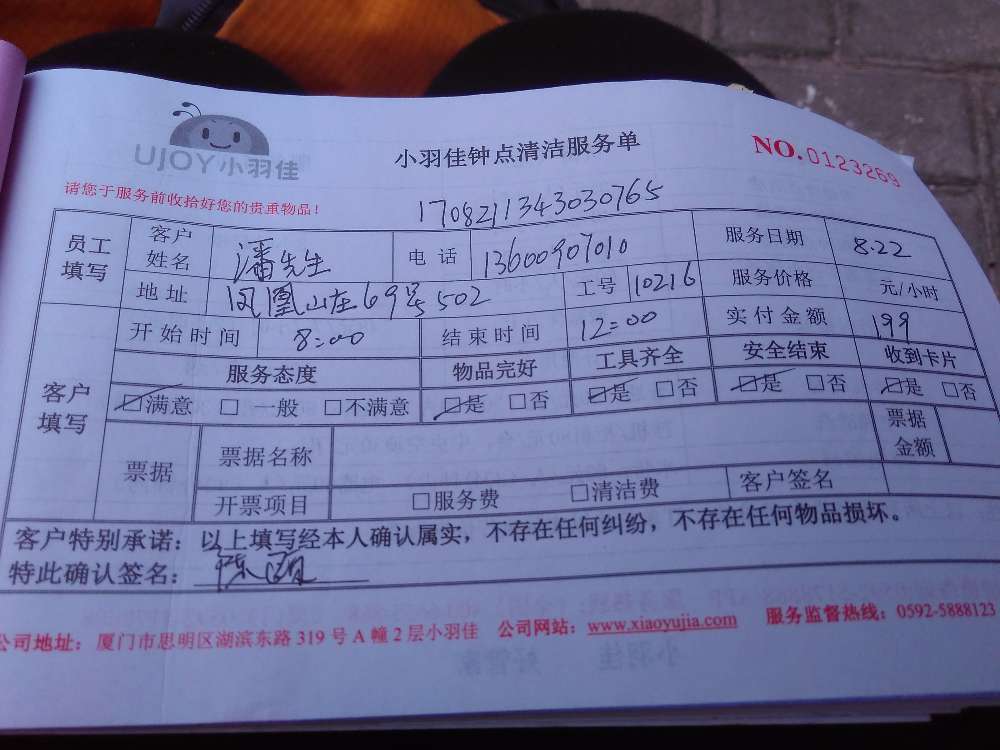 UJOY小羽佳
小羽佳钟点清洁服务单
NO.0123269
请您于服务前收拾好您的贵重物品！
1708211343030765
员工填写 客户姓名 潘先生 电话 13600907010 服务日期 8.22
地址 凤凰山庄69号502 工号 10216 服务价格 元/小时
客户填写 开始时间 8:00 结束时间 12:00 实付金额 199
服务态度 物品完好 工具齐全 安全结束 收到卡片
☑满意 □一般 □不满意 ☑是 □否 ☑是 □否 ☑是 □否 ☑是 □否
票据 票据名称 票据金额
开票项目 □服务费 □清洁费 客户签名
客户特别承诺：以上填写经本人确认属实，不存在任何纠纷，不存在任何物品损坏。
特此确认签名：
公司地址：厦门市思明区湖滨东路319号A幢2层小羽佳 公司网站：www.xiaoyujia.com 服务监督热线：0592-5888123